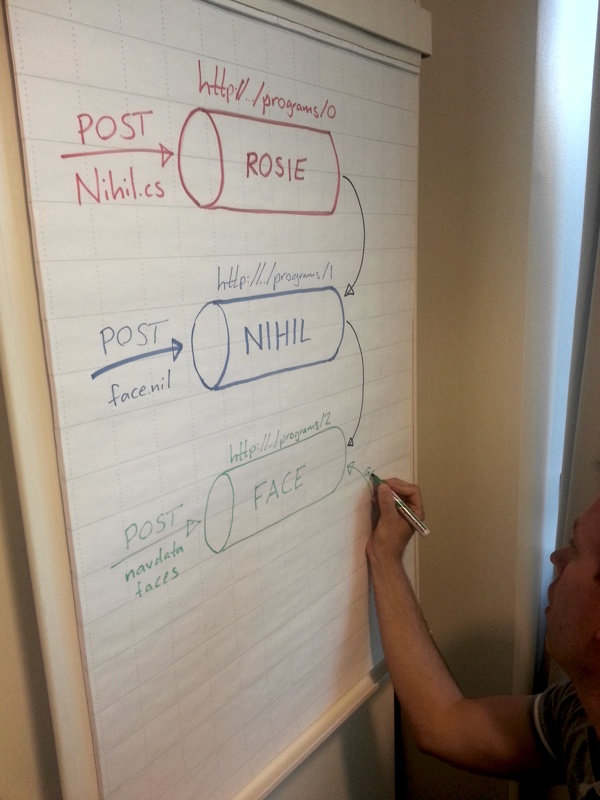 http://../programs/0
POST
Nihil.cs
ROSIE
http://../programs/1
POST
face.nil
NIHIL
http://../programs/2
POST
navdata
faces
FACE